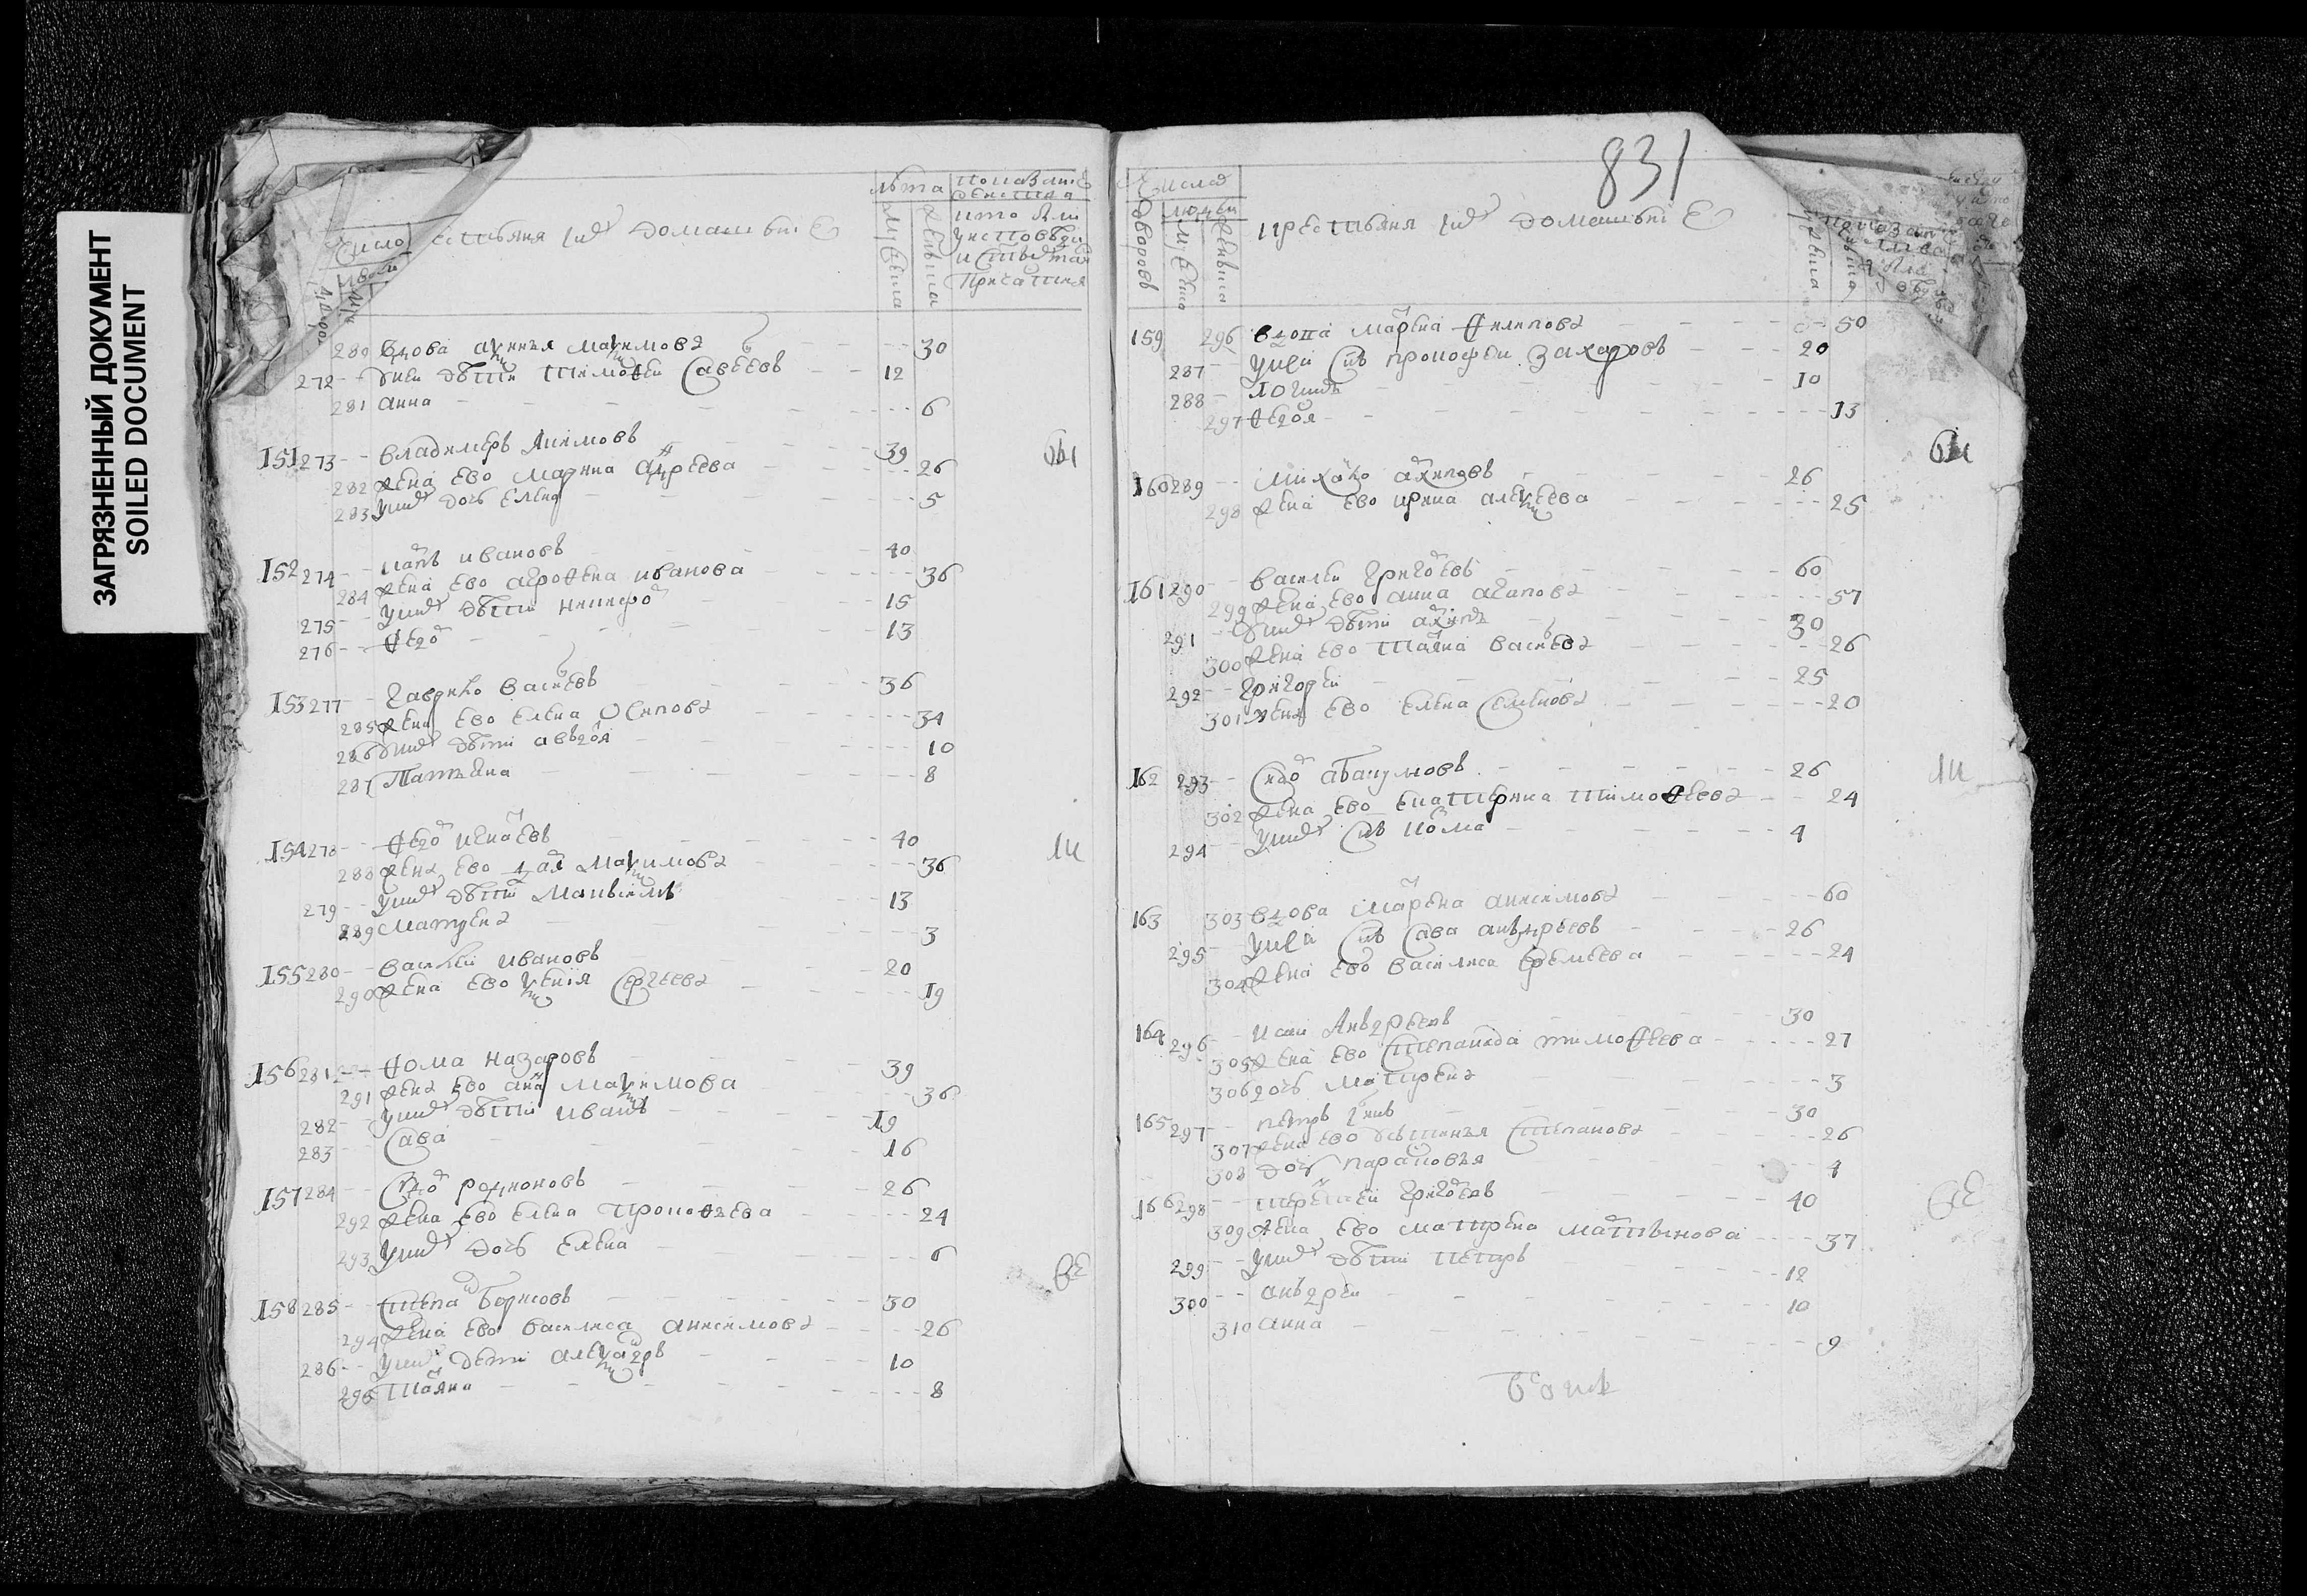 ЗАГРЯЗНЕННЫЙ ДОКУМЕНТ
SOILED DOCUMENT
число естьяня и домашънiе
лѣта
мужеска
женьска
280 вдова аксинья максимова 30
272 дети тимофеи савѣевъ 12
281 анна 6
151 273 владимеръ якимовъ 39
282 жена ево марина андреева 26
283 у них дочь елена 5
152 274 ивановъ 40
284 жена ево агрофена иванова 36
275 у них дѣти никифо 15
276 федо 13
153 277 гаврило василевъ 36
285 жена ево елена осипова 34
286 дѣти авдоя 10
287 татьяна 8
154 278 федо игнатевъ 40
288 жена ево дая максимова 36
279 у них дѣти 13
289 матрена 3
155 280 василеи ивановъ 20
290 жена ево ксения сергеева 19
156 281 фома назаровъ 39
291 жена ево анна максимова 36
282 у них дѣти иванъ 19
283 сава 16
157 284 сидо родионовъ 26
292 жена ево елена прокофьева 24
293 у них дочь елена 6
158 285 степа борисовъ 30
294 жена ево василиса анисимова 26
286 у них дети алексадръ 10
295 татяна 8
831
число
дворовъ
людеи
крестьяня и домашънiе
159 296 вдова марфа филипова 50
287 у неи снъ прокофеи захаровъ 20
288 логинъ 10
297 федоя 13
160 289 михаило архиповъ 26
298 жена ево ирина алексеева 25
161 290 василеи григоревъ 60
299 жена ево анна агапова 57
291 дѣти архипъ 30
300 жена ево татяна василева 26
292 григореи 25
301 жена ево елена семенова 20
162 293 сидо абакумовъ 26
302 жена ево екатирина тимофеева 24
294 у них снъ кома 4
163 303 вдова марфена анисимова 60
295 у неи снъ сава анъдреевъ 26
304 жена ево василиса еремеева 24
164 296 исаи анъдреевъ 30
305 жена ево степанида тимофеева 27
306 дочь матрена 3
165 297 петръ 30
307 жена ево степанова 26
308 дочь парасковья 4
166 298 григоревъ 40
309 жена ево матрена матвинова 37
299 у них дѣти петръ 12
300 анъдреи 10
310 анна 9